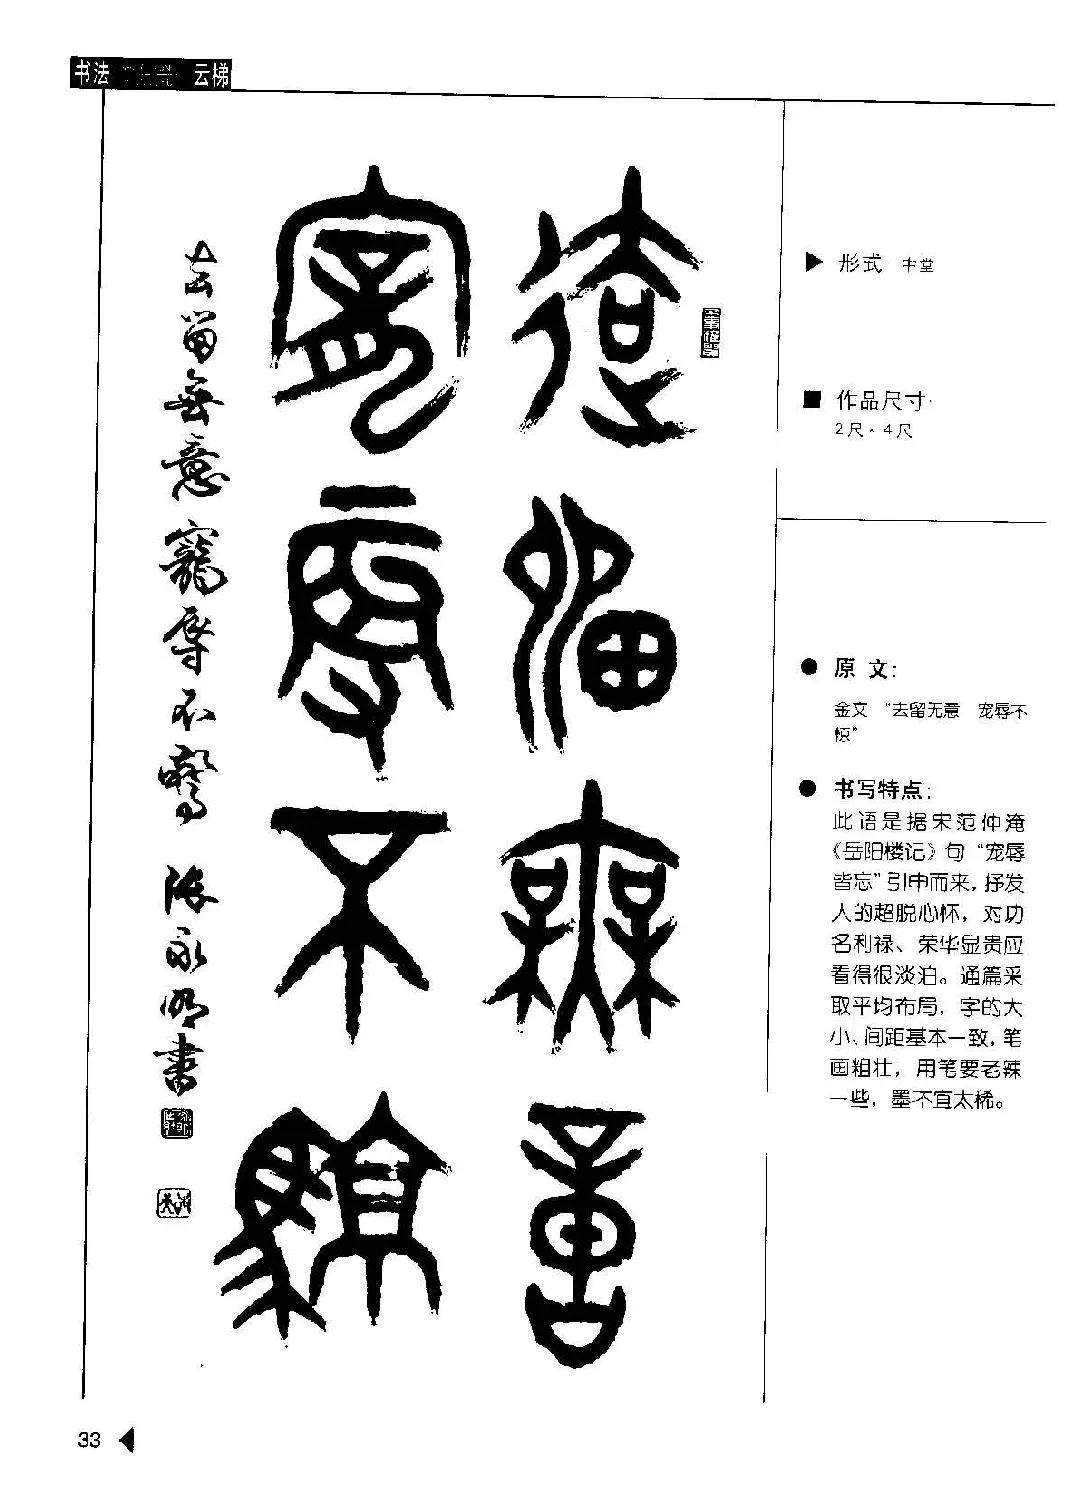 书法 云梯
去留無意
寵辱不驚
去留無意寵辱不驚 張永明書
形式 中堂
作品尺寸:
2尺×4尺
原 文:
金文 “去留无意 宠辱不
惊”
书写特点:
此语是据宋范仲淹
《岳阳楼记》句“宠辱
皆忘”引申而来，抒发
人的超脱心怀，对功
名利禄、荣华显贵应
看得很淡泊。通篇采
取平均布局，字的大
小、间距基本一致，笔
画粗壮，用笔要老辣
一些，墨不宜太稀。
33